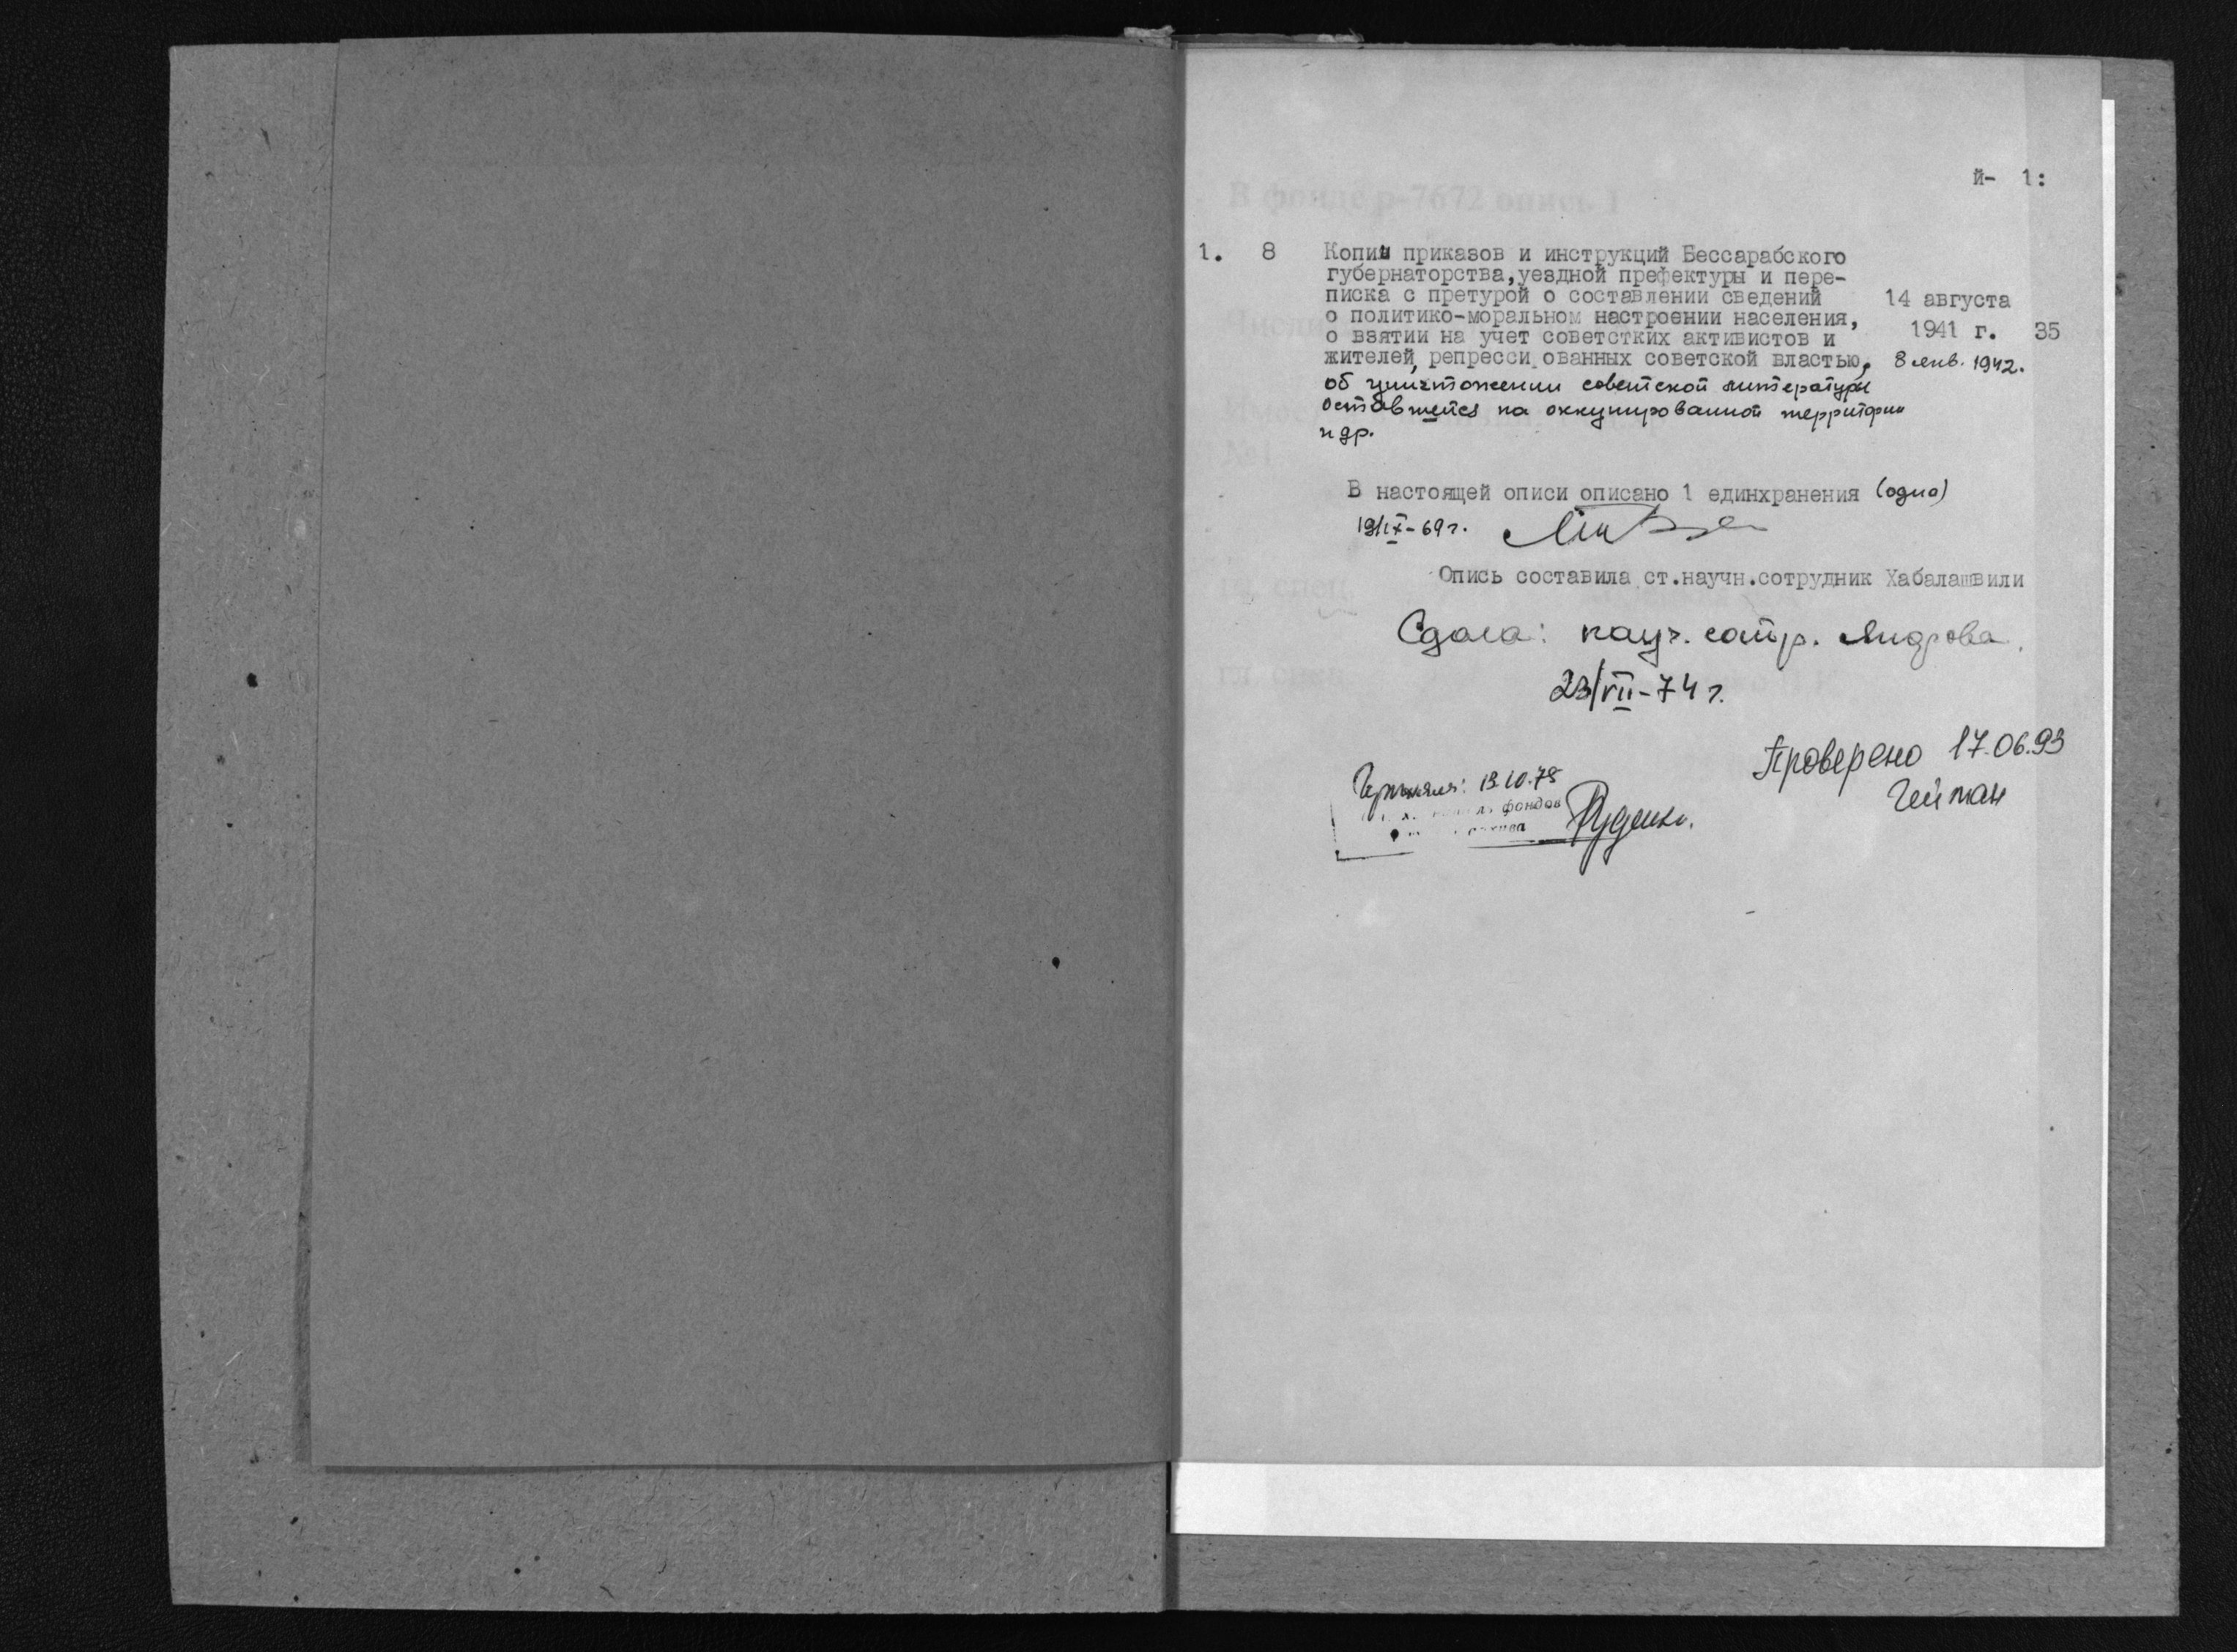 й- 1:
1. 8 Копии приказов и инструкций Бессарабского
губернаторства,уездной префектуры и пере-
писка с претурой о составлении сведений 14 августа
о политико-моральном настроении населения, 1941 г. 35
о взятии на учет советстких активистов и
жителей, репресси ованных советской властью, 8 янв. 1942.
об уничтожении советской литературы
оставшейся на оккупированной территории
и др.
В настоящей описи описано 1 единхранения (одна)
19/IX-69 г.
Опись составила ст.научн.сотрудник Хабалашвили
Сдала: науч. сотр. Андрова.
23/VII-74 г.
Проверено 17.06.93
Гейман
Приняла: 19.10.78
фондов
Руденко.
В фонде р-7672 опись 1